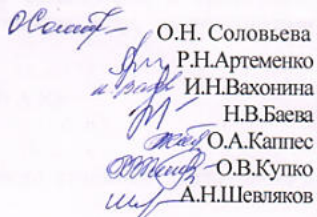 О.Н. Соловьева
Р.Н.Артеменко
И.Н.Вахонина
Н.В.Баева
О.А.Каппес
О.В.Купко
А.Н.Шевляков